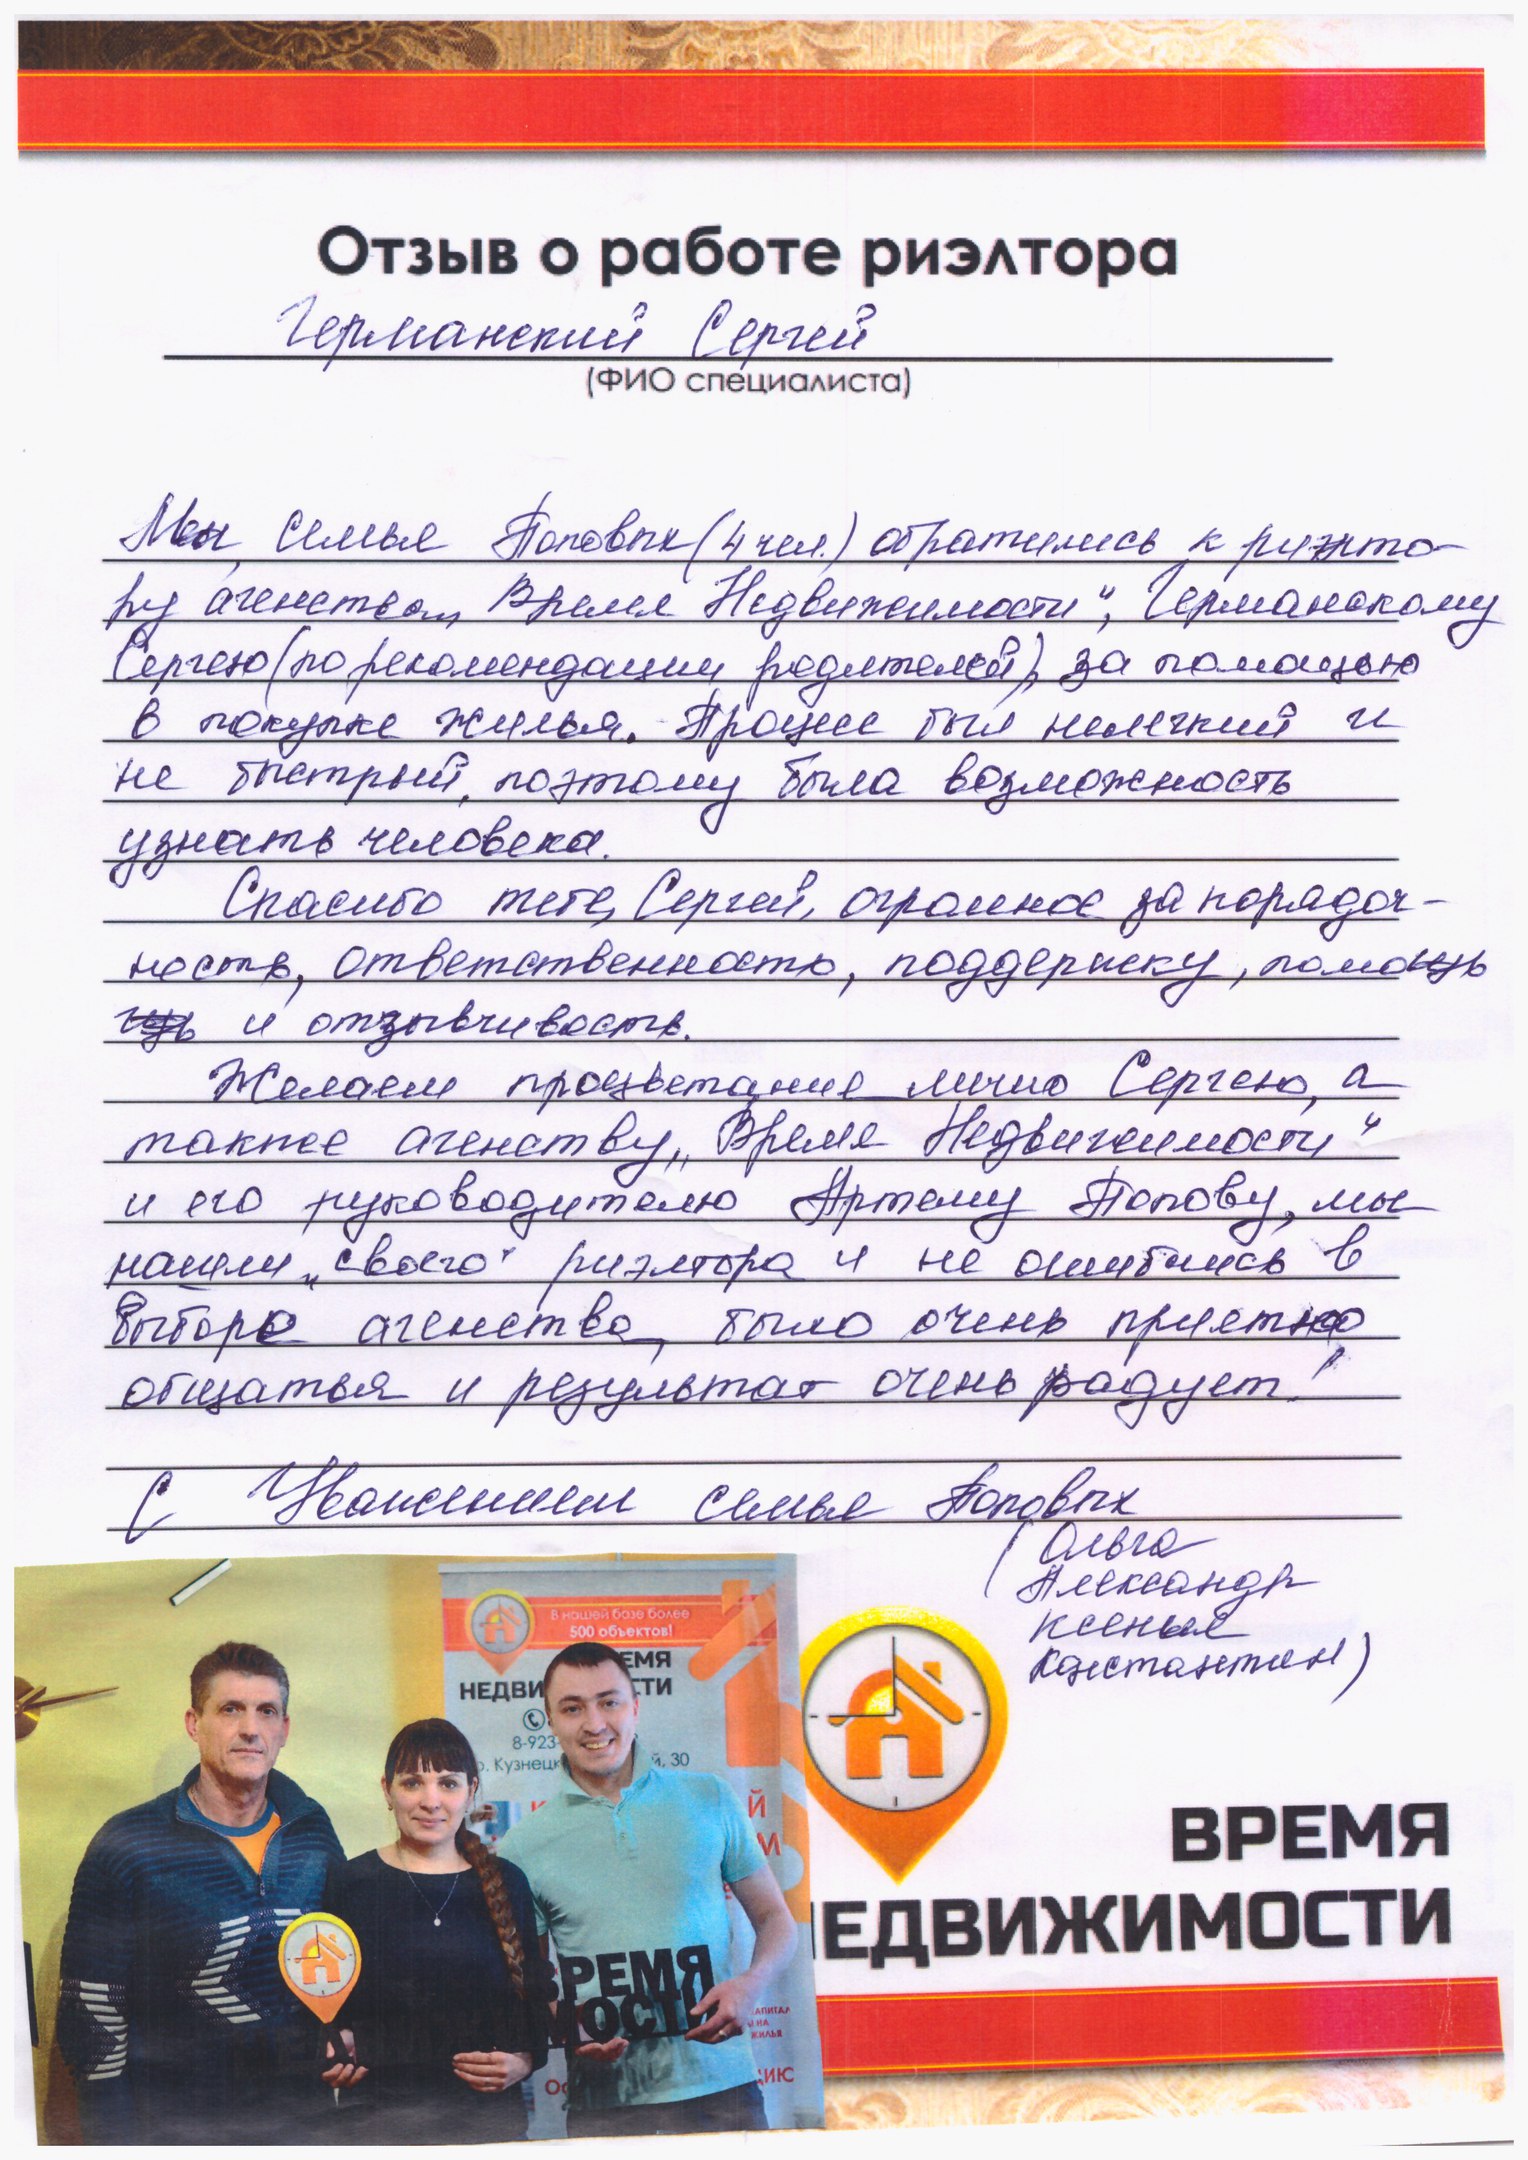 Отзыв о работе риэлтора
Германский Сергей
(ФИО специалиста)
Мы, семья Поповых (4 чел.) обратились к риэлто-
ру агенства „Время Недвижимости“, Германскому
Сергею (по рекомендации родителей), за помощью
в покупке жилья. Процесс был нелегкий и
не быстрый, поэтому была возможность
узнать человека.
Спасибо тебе, Сергей, огромное за порядоч-
ность, ответственность, поддержку, помощь
и отзывчивость.
Желаем процветания лично Сергею, а
также агенству „Время Недвижимости“
и его руководителю Артему Попову, мы
нашли „своего“ риэлтора и не ошиблись в
выборе агенства, было очень приятно
общаться и результат очень радует!
С Уважением семья Поповых
(Ольга
Александр
Ксенья
Константин)
В нашей базе более
500 объектов!
ЕМЯ
НЕДВИ ОСТИ
8-923-
р. Кузнец й, 30
Й
М
ВРЕМЯ
МОСТИ
АПИТАЛ
Ы НА
ЖИЛЬЯ
ЦИЮ
ВРЕМЯ
НЕДВИЖИМОСТИ